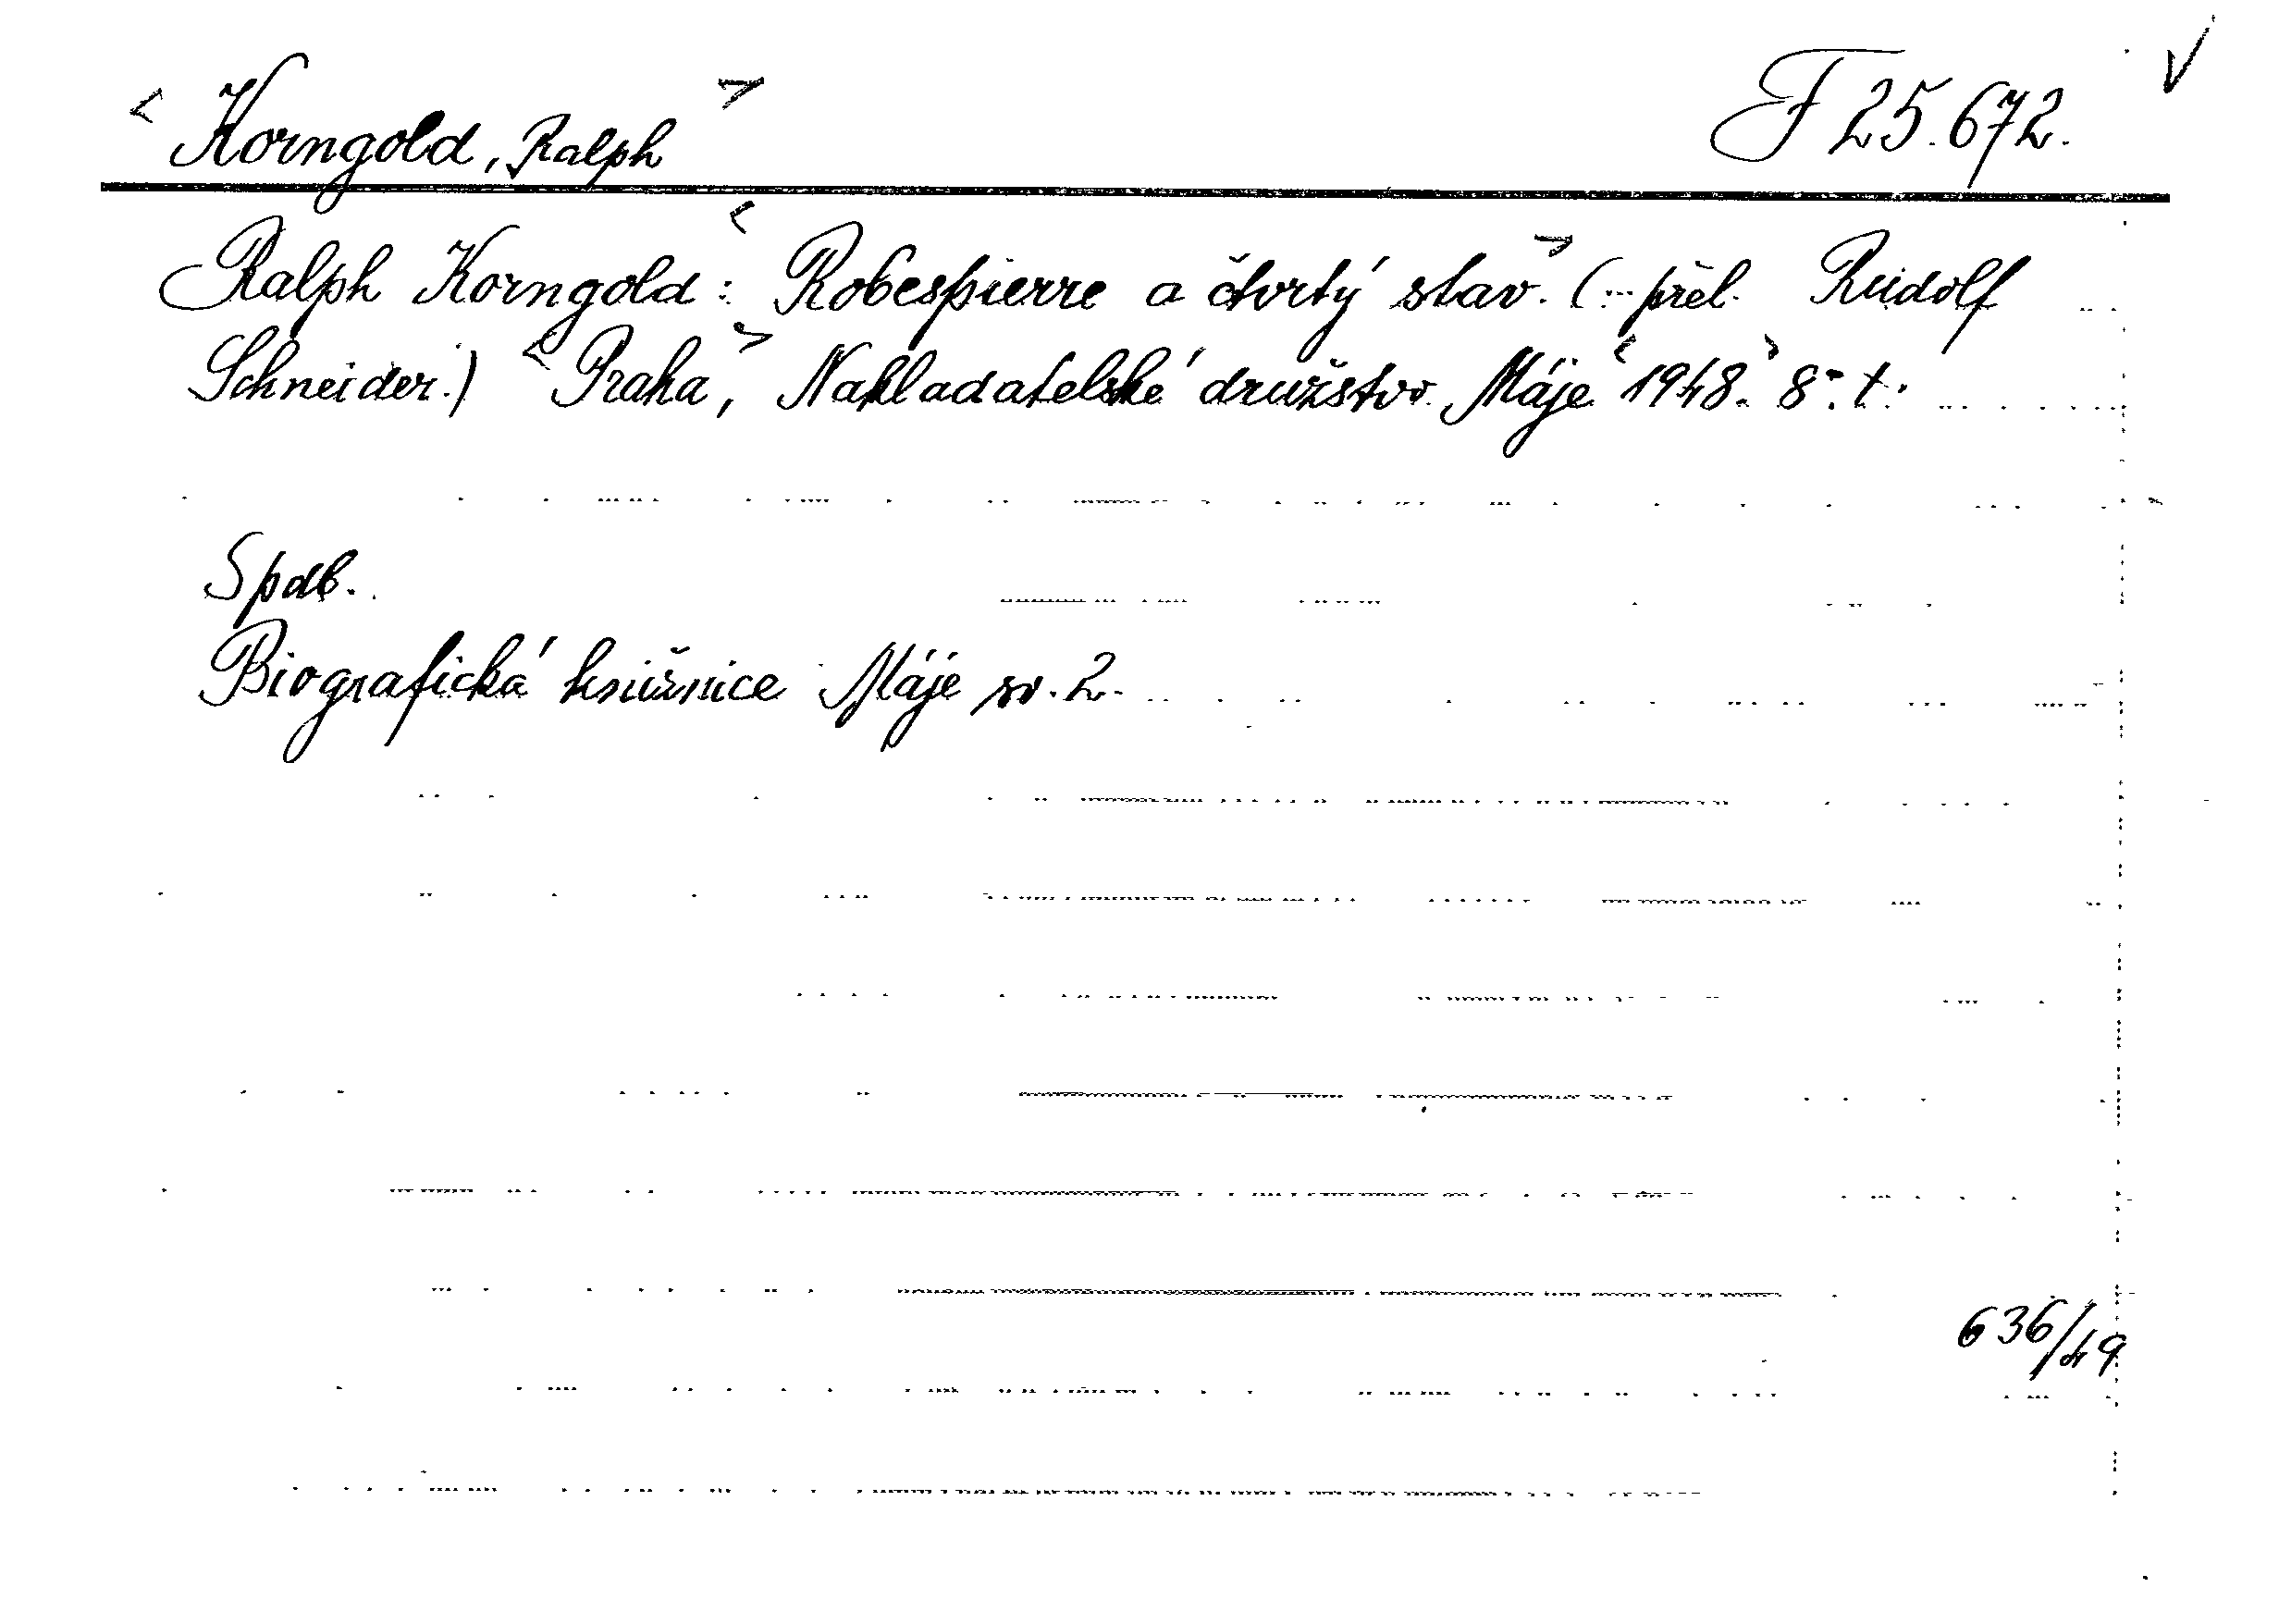 <Korngold, Ralph> F 25.672. ✓
Ralph Korngold: <Robespierre a čtvrtý stav.> (: přel. Rudolf
Schneider.) <Praha,> Nakladatelské družstvo Máje <1948.> 8° t.
Spdb.
Biografická knižnice Máje sv. 2.
636/49